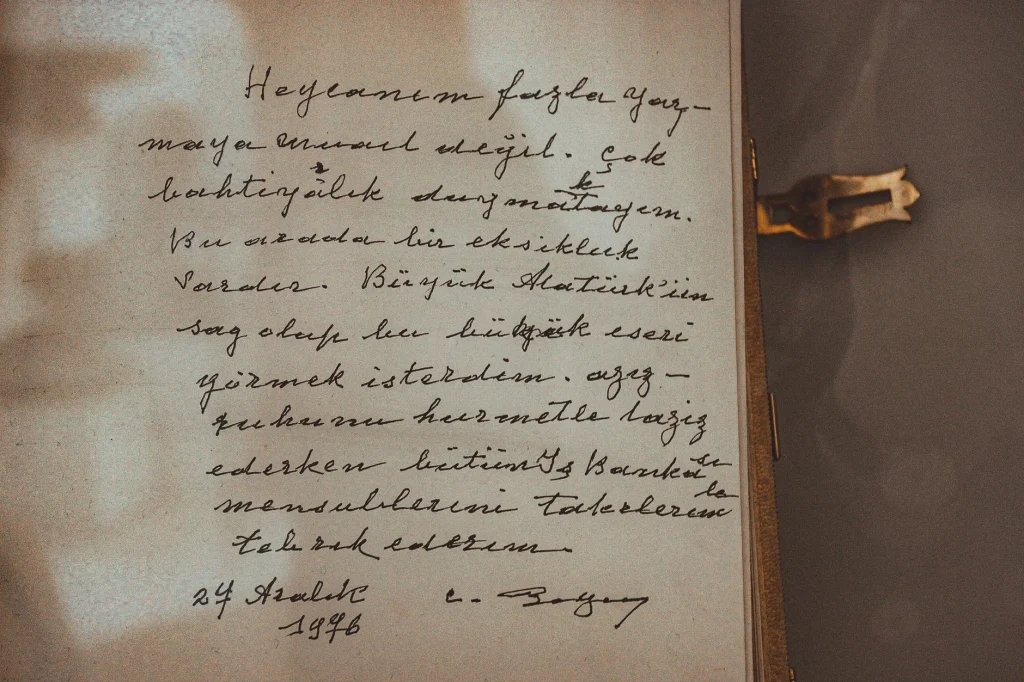 Heycanım fazla yaz-
maya müsaid değil. Çok
bahtiyarlık duymaktayım.
Bu arada bir eksikluk
vardır. Büyük Atatürk'ün
sag olup bu büyük eseri
görmek isterdim. aziz-
ruhunu hurmetle taziz
ederken bütün İş Bankası
mensublerini takdirlerimle
tebrik ederim.
27 Aralık C. Bayar
1976